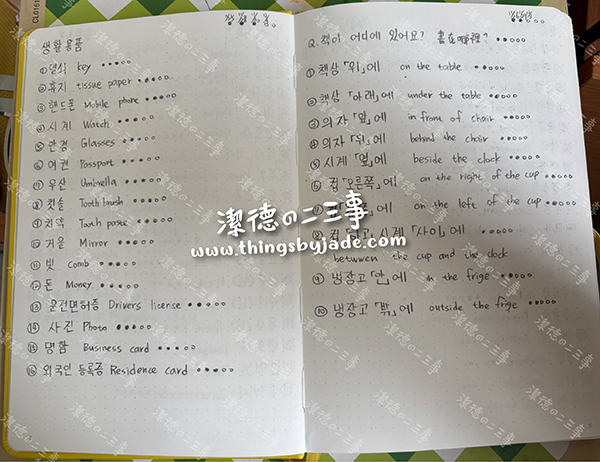 생활용품
① 열쇠 key
② 휴지 tissue paper
③ 핸드폰 Mobile phone
④ 시계 Watch
⑤ 안경 Glasses
⑥ 여권 Passport
⑦ 우산 Umbrella
⑧ 칫솔 Toothbrush
⑨ 치약 Tooth paste
⑩ 거울 Mirror
⑪ 빗 Comb
⑫ 돈 Money
⑬ 운전면허증 Drivers license
⑭ 사진 Photo
⑮ 명함 Business card
⑯ 외국인 등록증 Residence card
Q. 책이 어디에 있어요? 書在哪裡?
① 책상 「위」에 on the table
② 책상 「아래」에 under the table
③ 의자 「앞」에 in front of chair
④ 의자 「뒤」에 behind the chair
⑤ 시계 「옆」에 beside the clock
⑥ 컵 「오른쪽」에 on the right of the cup
⑦ 에 on the left of the cup
⑧ 컵 시계 「사이」에
betwwen the cup and the clock
⑨ 냉장고 「안」에 in the frige
⑩ 냉장고 「밖」에 outside the frige
潔德の二三事
www.thingsbyjade.com